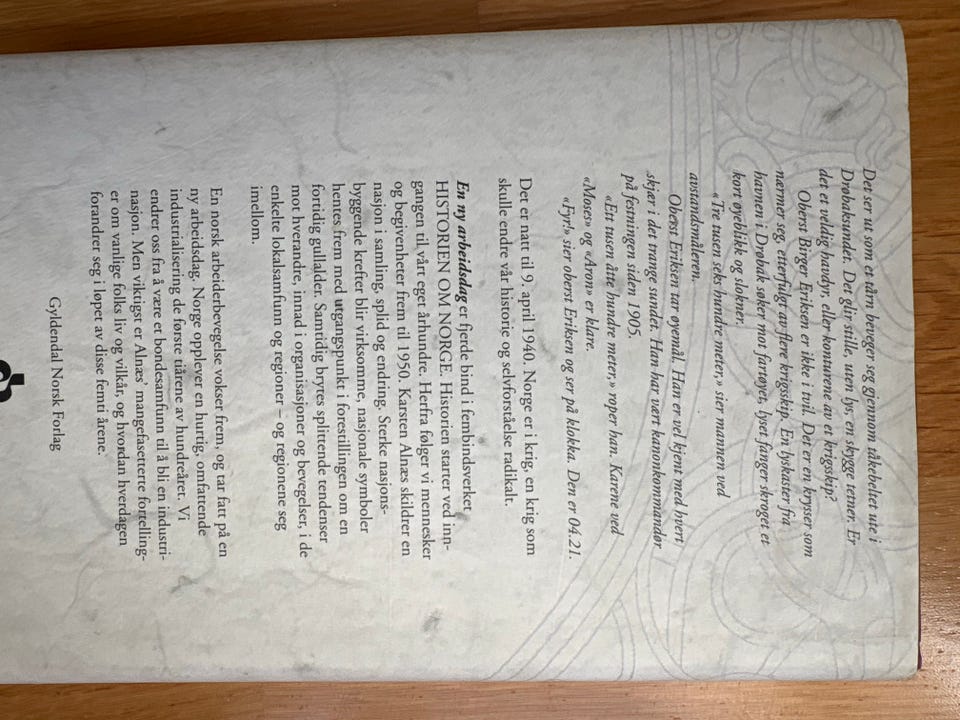 Det ser ut som et tårn beveger seg gjennom tåkebeltet ute i
Drøbaksundet. Det glir stille, uten lys, en skygge tetner. Er
det et veldig havdyr, eller konturene av et krigsskip?
Oberst Birger Eriksen er ikke i tvil. Det er en krysser som
nærmer seg, etterfulgt av flere krigsskip. En lyskaster fra
havnen i Drøbak søker mot fartøyet, lyset fanger skroget et
kort øyeblikk og slokner.
«Tre tusen seks hundre meter,» sier mannen ved
avstandsmåleren.
Oberst Eriksen tar øyemål. Han er vel kjent med hvert
skjær i det trange sundet. Han har vært kanonkommandør
på festningen siden 1905.
«Ett tusen åtte hundre meter,» roper han. Karene ved
«Moses» og «Aron» er klare.
«Fyr!» sier oberst Eriksen og ser på klokka. Den er 04.21.
Det er natt til 9. april 1940. Norge er i krig, en krig som
skulle endre vår historie og selvforståelse radikalt.
En ny arbeidsdag er fjerde bind i fembindsverket
HISTORIEN OM NORGE. Historien starter ved inn-
gangen til vårt eget århundre. Herfra følger vi mennesker
og begivenheter frem til 1950. Karsten Alnæs skildrer en
nasjon i samling, splid og endring. Sterke nasjons-
byggende krefter blir virksomme, nasjonale symboler
hentes frem med utgangspunkt i forestillingen om en
fortidig gullalder. Samtidig brytes splittende tendenser
mot hverandre, innad i organisasjoner og bevegelser, i de
enkelte lokalsamfunn og regioner – og regionene seg
imellom.
En norsk arbeiderbevegelse vokser frem, og tar fatt på en
ny arbeidsdag. Norge opplever en hurtig, omfattende
industrialisering de første tiårene av hundreåret. Vi
endrer oss fra å være et bondesamfunn til å bli en industri-
nasjon. Men viktigst er Alnæs' mangefasetterte fortelling-
er om vanlige folks liv og vilkår, og hvordan hverdagen
forandrer seg i løpet av disse femti årene.
Gyldendal Norsk Forlag